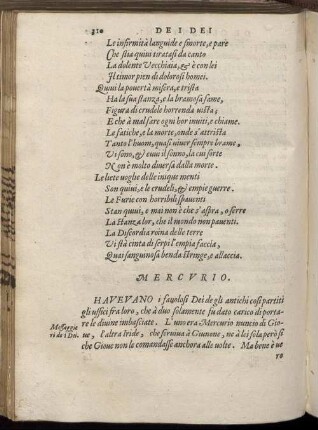 310 DE I DEI
Le infirmità languide e smorte, e pare
Che stia quiui tiratasi da canto
La dolente Vecchiaia, & è con lei
Il timor pien di dolorosi homei.
Quiui la pouertà misera, e trista
Ha la sua stanza, e la bramosa fame,
Figura di crudele horrenda uista;
E che à mal fare ogni hor inuiti, e chiame.
Le fatiche, e la morte, onde s'attrista
Tanto l'huom, quasi uiuer sempre brame,
Vi sono, & eui il sonno, la cui sorte
Non è molto diuersa dalla morte.
Le liete uoglie delle inique menti
Son quiui, e le crudeli, & empie guerre.
Le Furie con horribili spauenti
Stan quiui, e mai non è che s'apra, o serre
La stanza lor, che il mondo non pauenti.
La Discordia roina delle terre
Vi stà cinta di serpi l'empia faccia,
Qual sanguinosa benda stringe, e allaccia.
MERCVRIO.
HAVEVANO i fauolosi Dei de gli antichi così partiti
gli uffici fra loro, che à duo solamente fu dato carico di porta
re le diuine imbasciate. L'uno era Mercurio nuncio di Gio-
Messaggie
ri de i Dei.
ue, l'altra Iride, che seruiua à Giunone, ne à lei sola però sì
che Gioue non le comandasse anchora alle uolte. Ma bene è ue
ro